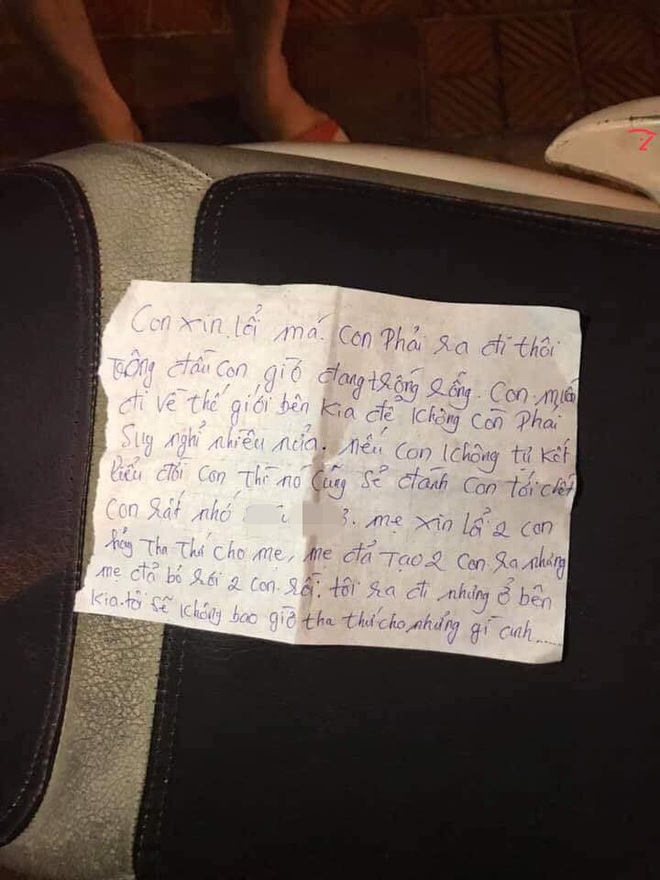 Con xin lổi má. Con Phải ra đi thôi
trong đầu con giờ đang trống rỗng. Con muốn
đi về thế giới bên kia để không còn Phải
Suy nghỉ nhiều nửa. nếu con không tự kết
liểu đời con thì nó cũng sẽ đánh con tới chết
con rất nhớ mẹ xin lổi 2 con
hảy Tha Thứ cho mẹ, mẹ đả Tạo 2 con ra nhưng
mẹ đả bỏ rơi 2 con rồi. tôi ra đi nhưng ở bên
kia tôi Sẽ không bao giờ tha thứ cho những gì anh......